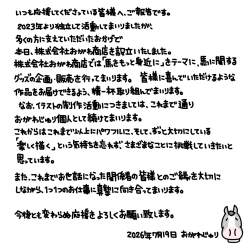 いつも応援してくださっている皆様へ、ご報告です。
2023年より独立して活動してまいりましたが、
多くの方に支えていただいたおかげで
本日、株式会社おかわ商店を設立いたしました。
株式会社おかわ商店では「馬をもっと身近に」をテーマに、馬に関する
グッズの企画・販売を行ってまいります。 皆様に喜んでいただけるような
作品をお届けできるよう、精一杯取り組んでまいります。
なお、イラストの制作活動につきましては、これまで通り
おかわじゅり個人として続けてまいります。
これからはこれまで以上にパワフルに、そして、ずっと大切にしている
「楽しい描く」という気持ちを忘れず さまざまなことに挑戦していきたいと
思っています。
また、これまでお世話になった関係者の皆様とのご縁を大切に
しながら、1つ1つのお仕事に真摯に向き合ってまいります。
今後とも変わらぬ応援をよろしくお願い致します。
2026年7月19日 おかわじゅり